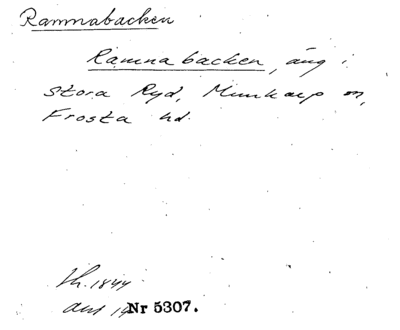 Ramnabacken
Ramnabacken, äng i
Stora Ryd, Munkarp sn,
Frosta hd.
1844
Nr 5307.